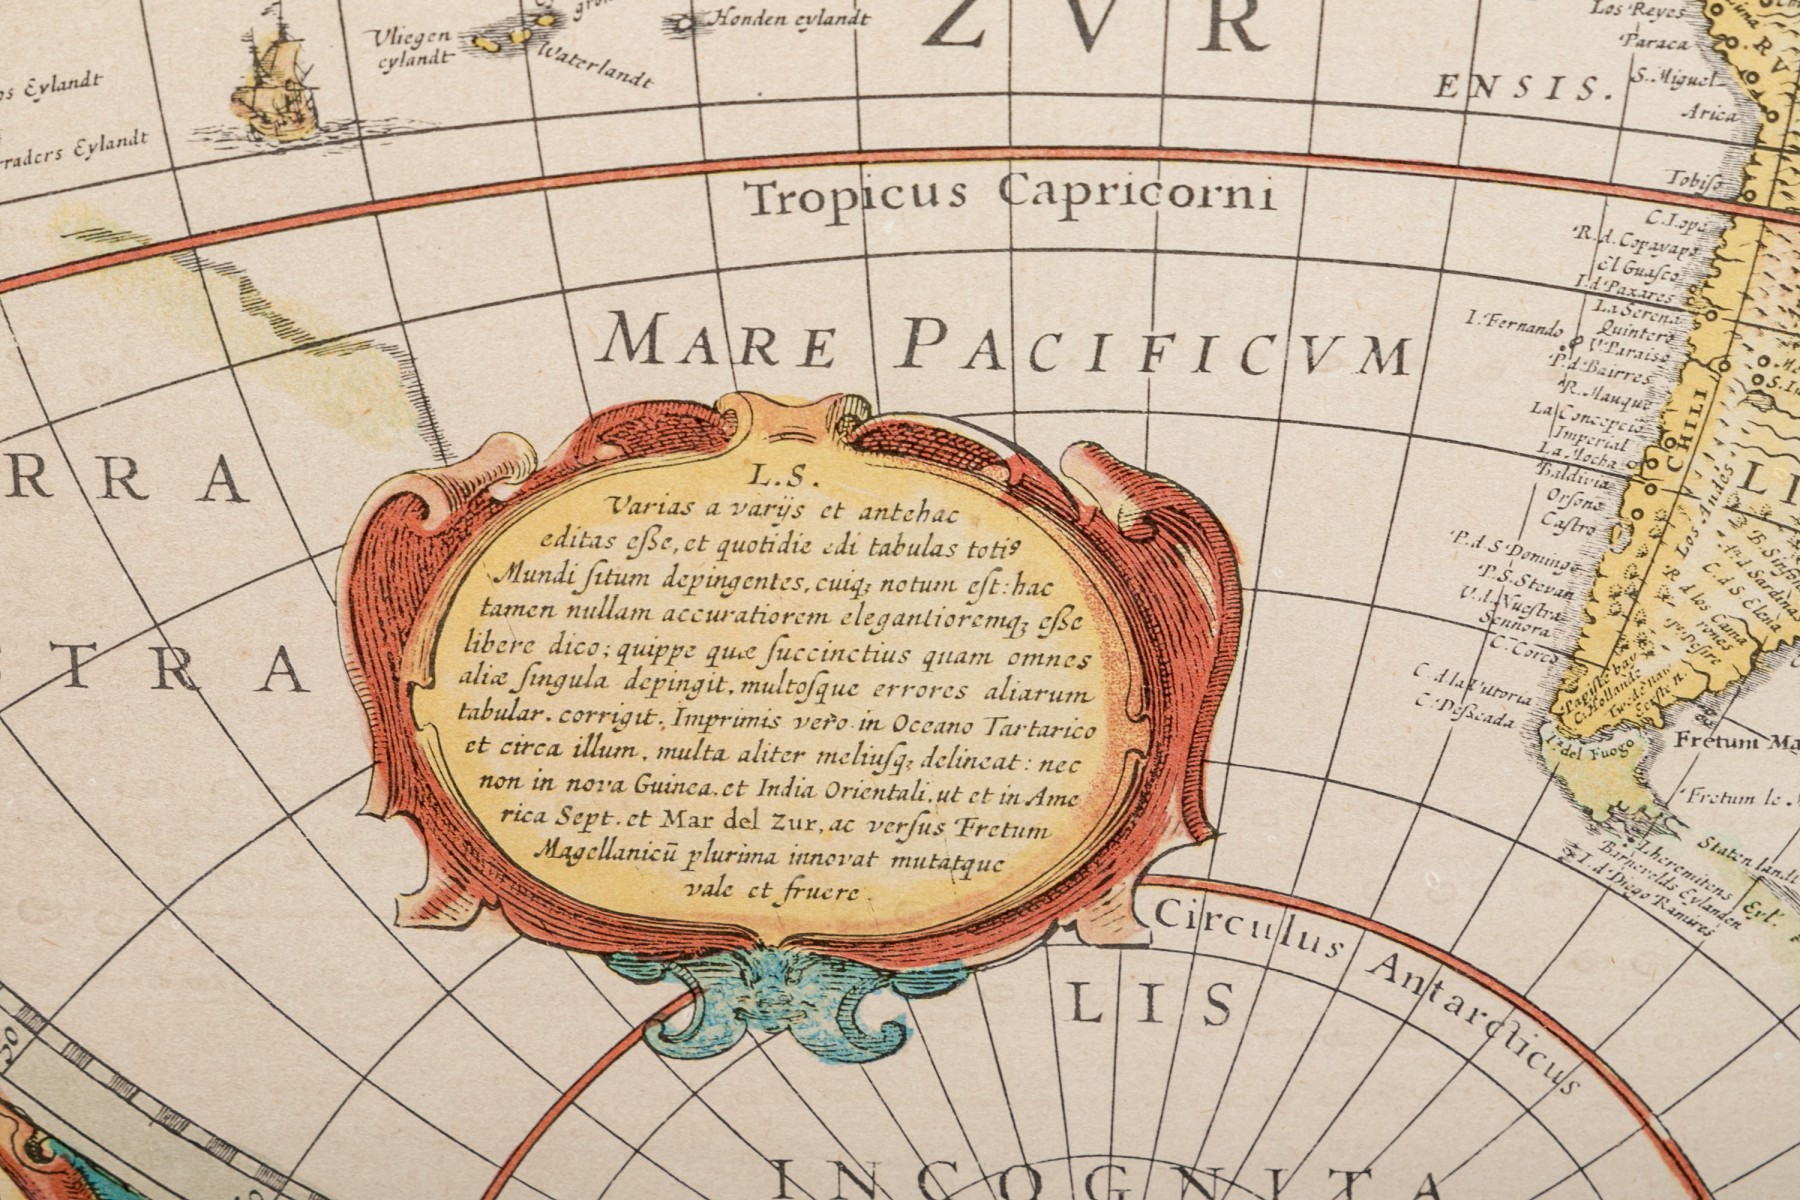 Z V R
Honden eylandt
Vliegen
eylandt
Waterlandt
Eylandt
raders Eylandt
Los Reyes
Paraca
S. Miguel
Arica
ENSIS.
Tropicus Capricorni
MARE PACIFICVM
C. Lopo
R. d. Copayapo
El Guasco
I. d. Paxares
La Serena
Quintero
I. Fernando
V. Paraiso
P. d. Bairres
R. Mauque
La Concepcio
Imperial
La Mocha
Baldivia
Orsono
Castro
P. d. S Domingo
P. S. Stevan
V. d. Nuestra
Sennora
C. Corco
C. d la Vittoria
C. Deßeada
CHILI
Los Andes
RRA
TRA
L.S.
Varias a varijs et antehac
editas eſße, et quotidie edi tabulas totiꝰ
Mundi ſitum depingentes, cuiqꝫ notum eſt: hac
tamen nullam accuratiorem elegantioremqꝫ eſße
libere dico; quippe quæ ſuccinctius quam omnes
aliæ ſingula depingit, multoſque errores aliarum
tabular. corrigit. Imprimis vero in Oceano Tartarico
et circa illum, multa aliter meliuſqꝫ delineat: nec
non in nova Guinea, et India Orientali, ut et in Ame
rica Sept. et Mar del Zur, ac verſus Fretum
Magellanicū plurima innovat mutatque
vale et fruere.
I. del Fuogo
Fretum Ma
Fretum le
Staten landt
Lheremitens
Barnevelds Eylanden
I. d. Diego Ramires
Eyl.
Circulus Antarcticus
LIS
INCOGNITA